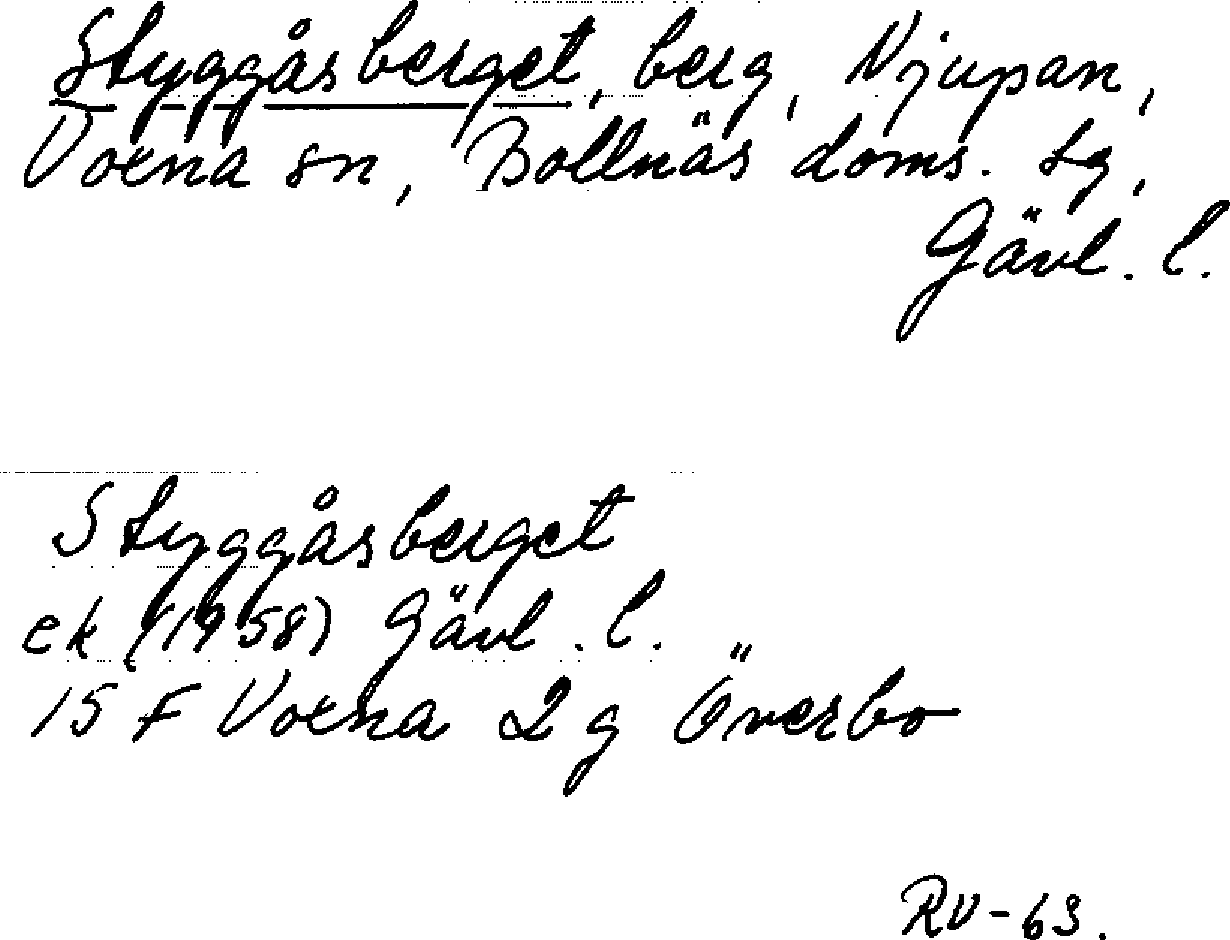 Styggåsberget, berg, Njupan,
Voxna sn, Bollnäs doms. tg,
Gävl. l.
Styggåsberget
ek (1958) Gävl. l.
15 F Voxna 2 g Överbo
RV-63.